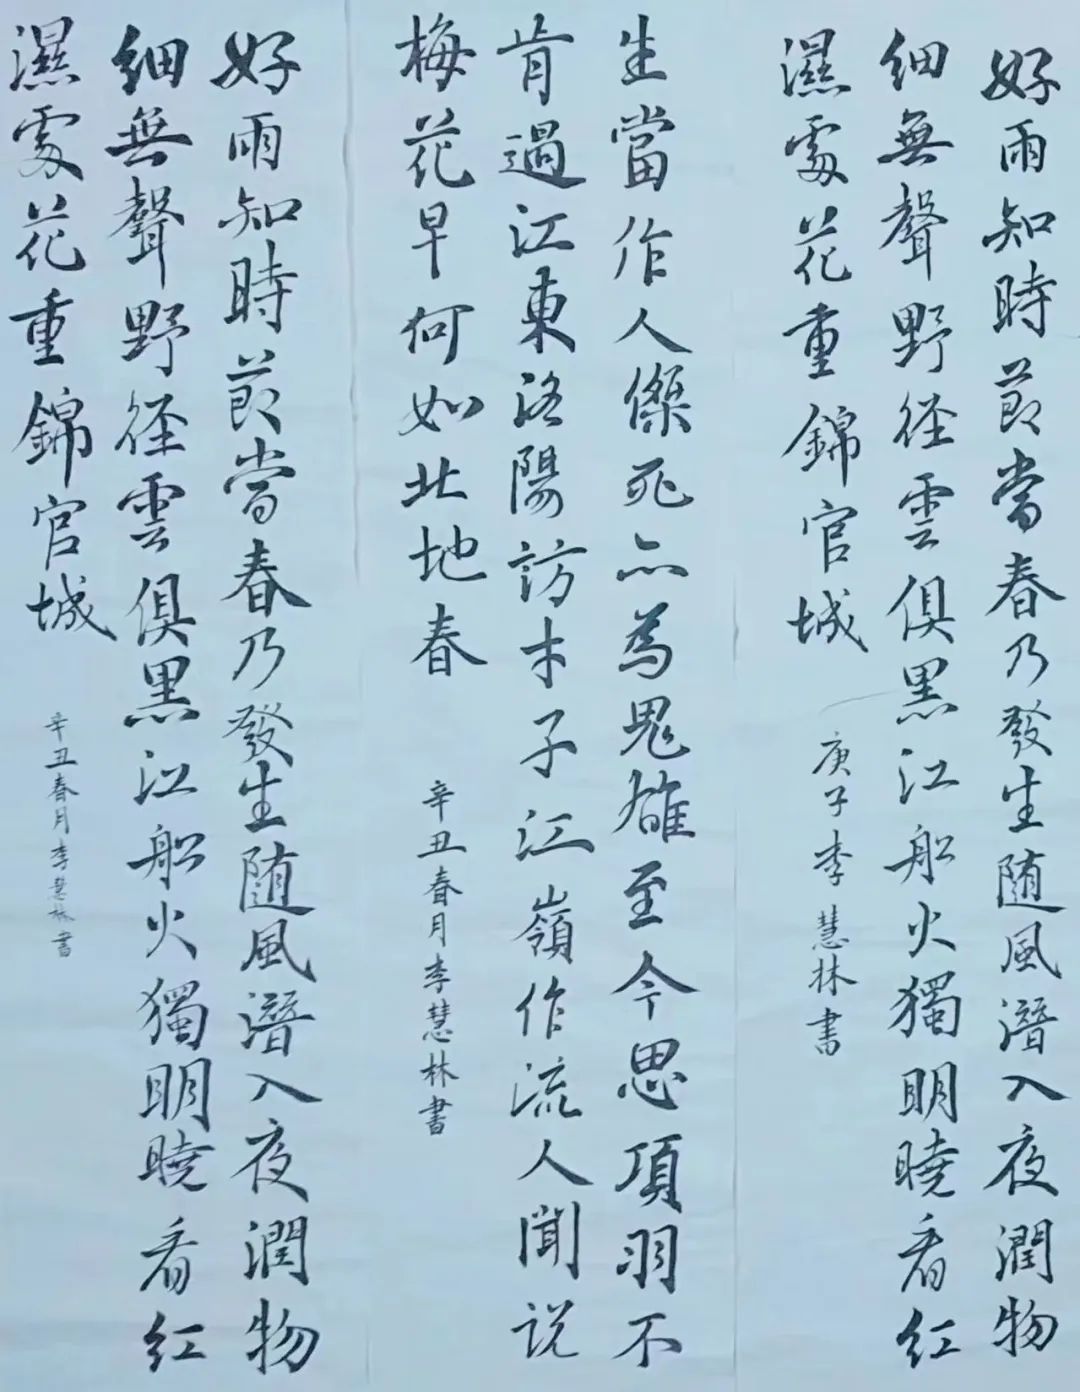 好雨知時節當春乃發生随風潛入夜潤物
細無聲野径雲俱黑江船火獨明曉看紅
濕處花重錦官城
庚子李慧林書
生當作人傑死亦為鬼雄至今思項羽不
肯過江東洛陽訪才子江嶺作流人聞説
梅花早何如北地春
辛丑春月李慧林書
好雨知時節當春乃發生随風潛入夜潤物
細無聲野径雲俱黑江船火獨明曉看紅
濕處花重錦官城
辛丑春月李慧林書